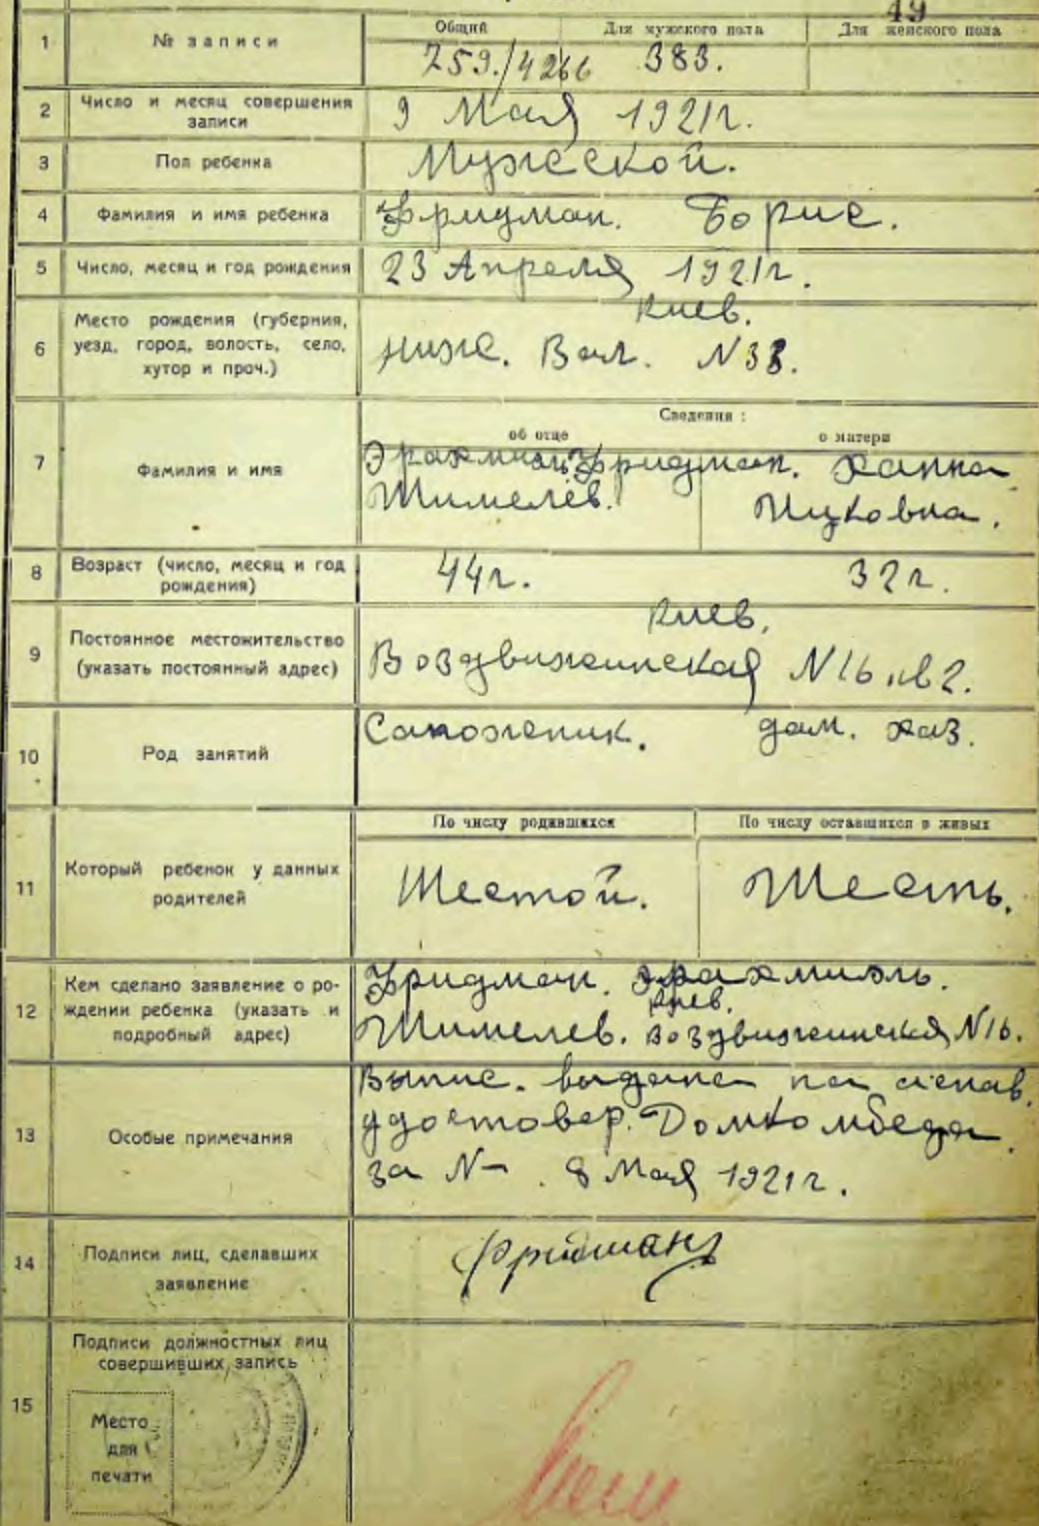 49
1
№ записи
Общий
Для мужского пола
Для женского пола
259./4266
383.
2
Число и месяц совершения
записи
9 Мая 1921г.
3
Пол ребенка
Мужеской.
4
Фамилия и имя ребенка
Фридман. Борис.
5
Число, месяц и год рождения
23 Апреля 1921г.
6
Место рождения (губерния,
уезд, город, волость, село,
хутор и проч.)
Киев.
Ниж. Вал. N33.
7
Фамилия и имя
Сведения:
об отце
о матери
Фридман. Ханна
Шимелев.
Ицковна.
8
Возраст (число, месяц и год
рождения)
44г.
32г.
9
Постоянное местожительство
(указать постоянный адрес)
Киев.
Воздвиженнская N16 кв2.
10
Род занятий
Сапоженик.
дом. хаз.
11
Который ребенок у данных
родителей
По числу родившихся
По числу оставшихся в живых
Шестой.
Шесть.
12
Кем сделано заявление о ро-
ждении ребенка (указать и
подробный адрес)
Фридман. Эрахмиэль.
Киев.
Шимелев. Воздвиженнская N16.
13
Особые примечания
Выпис. выдана на основ.
удостовер. Домкомбеда
за N– . 8 Мая 1921г.
14
Подписи лиц, сделавших
заявление
Фридманъ
15
Подписи должностных лиц
совершивших запись
Место
для
печати